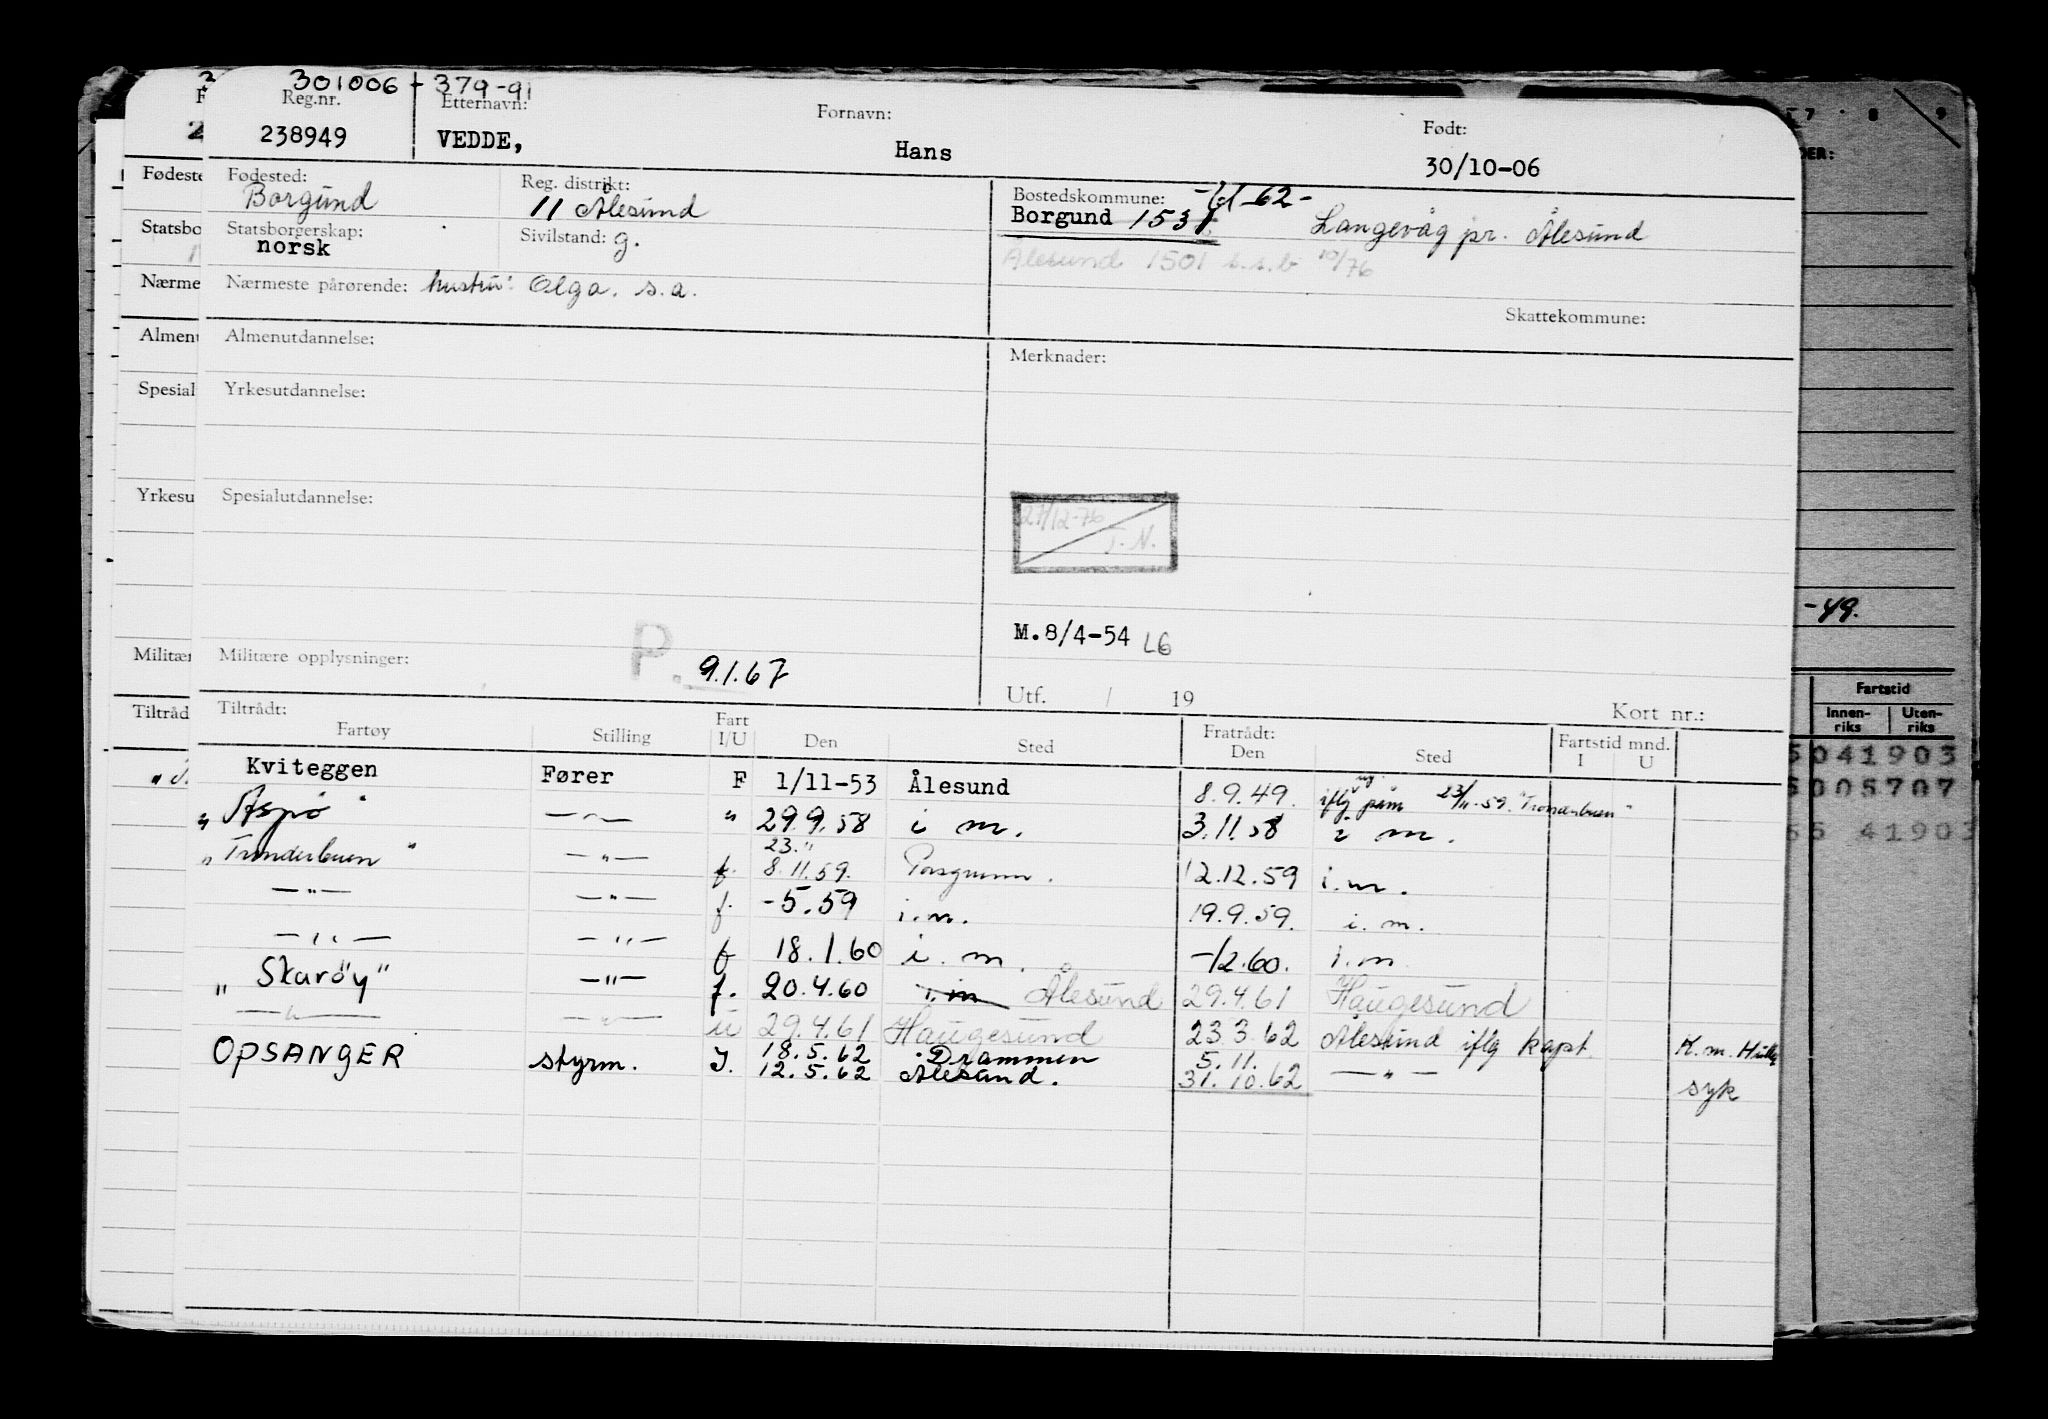 301006 - 379-91
Reg.nr. Etternavn: Fornavn: Født:
238949 VEDDE, Hans 30/10-06
Fødested: Reg. distrikt: Bostedskommune: -62-
Borgund 11 Ålesund Borgund 1531 Langevåg pr. Ålesund
Statsborgerskap: Sivilstand: g.
norsk Ålesund 1501 s.s.b 10/76
Nærmeste pårørende: hustru: Olga. s.a.
Skattekommune:
Almenutdannelse: Merknader:
Yrkesutdannelse:
Spesialutdannelse:
27/12-76
T.N.
M.8/4-54 L6
-49.
Militære opplysninger: P. 9.1.67
Utf. / 19 Kort nr.:
Tiltrådt: Fratrådt: Fartstid mnd.
Fartøy Stilling Fart I/U Den Sted Den Sted I U
Fartstid
Innen-riks Uten-riks
Kviteggen Fører F 1/11-53 Ålesund 8.9.49. iflg 23/11-59. "Trønderbuen"
5041903
5005707
"Aspø" —"— " 29.9.58 i m. 3.11.58 i m.
55 41903
23."
"Trønderbuen" —"— f. 8.11.59. Porsgrunn. 12.12.59 i.m.
—"— —"— f. -5.59 i.m. 19.9.59. i.m.
—"— —"— f 18.1.60 i.m. -12.60. i.m
"Skarøy" —"— f. 20.4.60 i.m Ålesund 29.4.61 Haugesund
—"— —"— u 29.4.61 Haugesund 23.3.62 Ålesund iflg kapt. K.m.
OPSANGER styrm. I. 18.5.62 Drammen 5.11.
12.5.62 Ålesund. 31.10.62 —"— syk